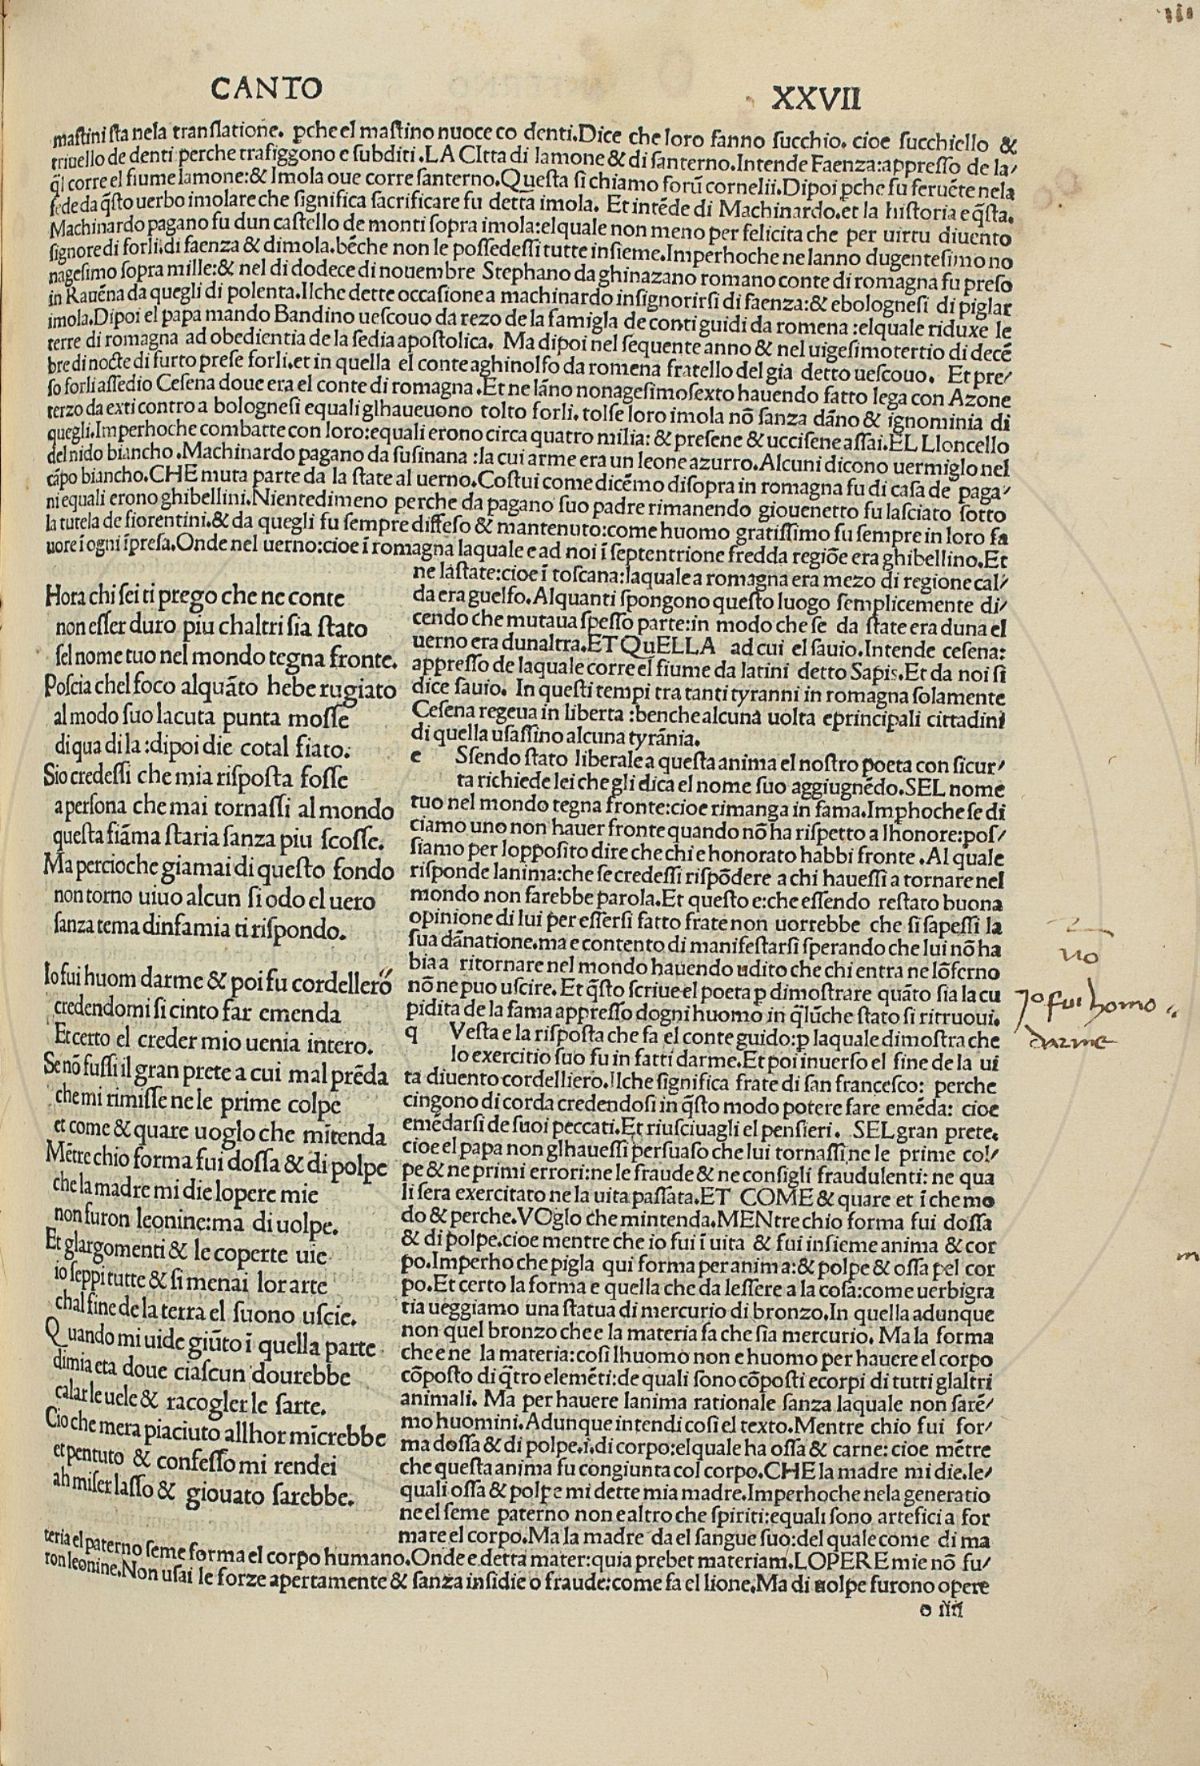 CANTO XXVII
maſtini ſta nela tranſlatione. pche el maſtino nuoce co denti. Dice che loro fanno ſucchio. cioe ſucchiello &
triuello de denti perche trafiggono e ſubditi. LA CItta di lamone & di ſanterno. Intende Faenza: appreſſo de la/
q̃l corre el fiume lamone: & Imola oue corre ſanterno. Queſta ſi chiamo forũ cornelii. Dipoi pche fu feruẽte nela
ſede da q̃ſto uerbo imolare che ſignifica ſacrificare fu detta imola. Et intẽde di Machinardo. et la hiſtoria e q̃ſta.
Machinardo pagano fu dun caſtello de monti ſopra imola: elquale non meno per felicita che per uirtu diuento
ſignore di forli. di faenza & dimola. bẽche non le poſſedeſſi tutte inſieme. Imperhoche ne lanno dugenteſimo no
nageſimo ſopra mille: & nel di dodece di nouembre Stephano da ghinazano romano conte di romagna fu preſo
in Rauẽna da quegli di polenta. Ilche dette occaſione a machinardo inſignorirſi di faenza: & ebologneſi di piglar
imola. Dipoi el papa mando Bandino ueſcouo da rezo de la famigla de conti guidi da romena: elquale riduxe le
terre di romagna ad obedientia de la ſedia apoſtolica. Ma dipoi nel ſequente anno & nel uigeſimotertio di decẽ
bre di nocte di furto preſe forli. et in quella el conte aghinolfo da romena fratello del gia detto ueſcouo. Et pre/
ſo forli aſſedio Ceſena doue era el conte di romagna. Et ne lãno nonageſimoſexto hauendo fatto lega con Azone
terzo da exti contro a bologneſi equali glhaueuono tolto forli. tolſe loro imola nõ ſanza dãno & ignominia di
quegli. Imperhoche combatte con loro: equali erono circa quatro milia: & preſene & ucciſene aſſai. EL LIoncello
del nido biancho. Machinardo pagano da ſuſinana: la cui arme era un leone azurro. Alcuni dicono uermiglo nel
cãpo biancho. CHE muta parte da la ſtate al uerno. Coſtui come dicẽmo diſopra in romagna fu di caſa de paga/
ni equali erono ghibellini. Nientedimeno perche da pagano ſuo padre rimanendo giouenetto fu laſciato ſotto
la tutela de fiorentini. & da quegli fu ſempre diffeſo & mantenuto: come huomo gratiſſimo fu ſempre in loro fa
uore ĩ ogni ĩpreſa. Onde nel uerno: cioe ĩ romagna laquale e ad noi ĩ ſeptentrione fredda regiõe era ghibellino. Et
ne laſtate: cioe ĩ toſcana: laquale a romagna era mezo di regione cal/
da era guelfo. Alquanti ſpongono queſto luogo ſemplicemente di/
cendo che mutaua ſpeſſo parte: in modo che ſe da ſtate era duna el
uerno era dunaltra. ET QuELLA ad cui el ſauio. Intende ceſena:
appreſſo de laquale corre el fiume da latini detto Sapis. Et da noi ſi
dice ſauio. In queſti tempi tra tanti tyranni in romagna ſolamente
Ceſena regeua in liberta: benche alcuna uolta eprincipali cittadini
di quella uſaſſino alcuna tyrãnia.
Hora chi ſei ti prego che ne conte
non eſſer duro piu chaltri ſia ſtato
ſel nome tuo nel mondo tegna fronte.
Poſcia chel foco alquãto hebe rugiato
al modo ſuo lacuta punta moſſe
di qua di la: dipoi die cotal fiato.
Sio credeſſi che mia riſpoſta foſſe
a perſona che mai tornaſſi al mondo
queſta fiãma ſtaria ſanza piu ſcoſſe.
Ma percioche giamai di queſto fondo
non torno uiuo alcun ſi odo el uero
ſanza tema dinfamia ti riſpondo.
Io fui huom darme & poi fu cordellero
credendomi ſi cinto far emenda
Et certo el creder mio uenia intero.
Se nõ fuſſi il gran prete a cui mal prẽda
che mi rimiſſe ne le prime colpe
et come & quare uoglo che mĩtenda
Mẽtre chio forma fui doſſa & di polpe
che la madre mi die lopere mie
non furon leonine: ma di uolpe.
Et glargomenti & le coperte uie
io ſeppi tutte & ſi menai lor arte
chal fine de la terra el ſuono uſcie.
Quando mi uide giũto ĩ quella parte
dimia eta doue ciaſcun dourebbe
calar le uele & racogler le ſarte.
Cio che mera piaciuto allhor mĩcrebbe
et pentuto & confeſſo mi rendei
ah miſer laſſo & giouato ſarebbe.
e Sſendo ſtato liberale a queſta anima el noſtro poeta con ſicur/
ta richiede lei che gli dica el nome ſuo aggiugnẽdo. SEL nome
tuo nel mondo tegna fronte: cioe rimanga in fama. Imphoche ſe di
ciamo uno non hauer fronte quando nõ ha riſpetto a lhonore: poſ/
ſiamo per loppoſito dire che chi e honorato habbi fronte. Al quale
riſponde lanima: che ſe credeſſi riſpõdere a chi haueſſi a tornare nel
mondo non farebbe parola. Et queſto e: che eſſendo reſtato buona
opinione di lui per eſſerſi fatto frate non uorrebbe che ſi ſapeſſi la
ſua dãnatione. ma e contento di manifeſtarſi ſperando che lui nõ ha
bia a ritornare nel mondo hauendo udito che chi entra ne lõferno
nõ ne puo uſcire. Et q̃ſto ſcriue el poeta p dimoſtrare quãto ſia la cu
pidita de la fama appreſſo dogni huomo in q̃lũche ſtato ſi ritruoui.
q Veſta e la riſpoſta che fa el conte guido: p laquale dimoſtra che
lo exercitio ſuo fu in fatti darme. Et poi inuerſo el fine de la ui
ta diuento cordelliero. Ilche ſignifica frate di ſan franceſco: perche
cingono di corda credendoſi in q̃ſto modo potere fare emẽda: cioe
emẽdarſi de ſuoi peccati. Et riuſciuagli el penſieri. SEL gran prete.
cioe el papa non glhaueſſi perſuaſo che lui tornaſſi ne le prime col/
pe & ne primi errori: ne le fraude & ne conſigli fraudulenti: ne qua
li ſera exercitato ne la uita paſſata. ET COME & quare et ĩ che mo
do & perche. VOglo che mintenda. MENtre chio forma fui doſſa
& di polpe. cioe mentre che io fui ĩ uita & fui inſieme anima & cor
po. Imperho che pigla qui forma per anima: & polpe & oſſa pel cor
po. Et certo la forma e quella che da leſſere a la coſa: come uerbigra
tia ueggiamo una ſtatua di mercurio di bronzo. In quella adunque
non quel bronzo che e la materia fa che ſia mercurio. Ma la forma
che e ne la materia: coſi lhuomo non e huomo per hauere el corpo
cõpoſto di q̃tro elemẽti: de quali ſono cõpoſti ecorpi di tutti glaltri
animali. Ma per hauere lanima rationale ſanza laquale non ſarẽ/
mo huomini. Adunque intendi coſi el texto. Mentre chio fui for/
ma doſſa & di polpe. i. di corpo: elquale ha oſſa & carne: cioe mẽtre
che queſta anima fu congiunta col corpo. CHE la madre mi die. le/
quali oſſa & polpe mi dette mia madre. Imperhoche nela generatio
ne el ſeme paterno non e altro che ſpiriti: equali ſono artefici a for
mare el corpo. Ma la madre da el ſangue ſuo: del quale come di ma
teria el paterno ſeme forma el corpo humano. Onde e detta mater: quia prebet materiam. LOPERE mie nõ fu/
ron leonine. Non uſai le forze apertamente & ſanza inſidie o fraude: come fa el lione. Ma di uolpe furono opere
o iiii
Jo fui homo
darme